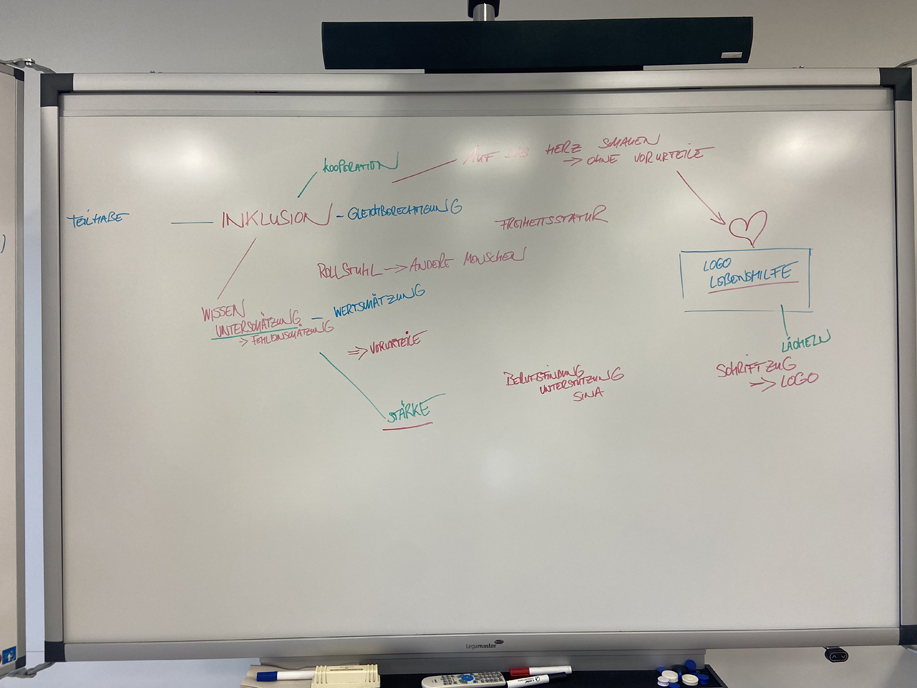 KOOPERATION
AUF DAS HERZ SCHAUEN
→ OHNE VORURTEILE
TEILHABE
INKLUSION – GLEICHBERECHTIGUNG
FREIHEITSSTATUE
ROLLSTUHL → ANDERE MENSCHEN
LOGO
LEBENSHILFE
WISSEN
UNTERSCHÄTZUNG – WERTSCHÄTZUNG
→ FEHLEINSCHÄTZUNG
⇒ VORURTEILE
LÄCHELN
SCHRIFTZUG
→ LOGO
BERUFSFINDUNG
UNTERSTÜTZUNG
SINA
STÄRKE
Legamaster